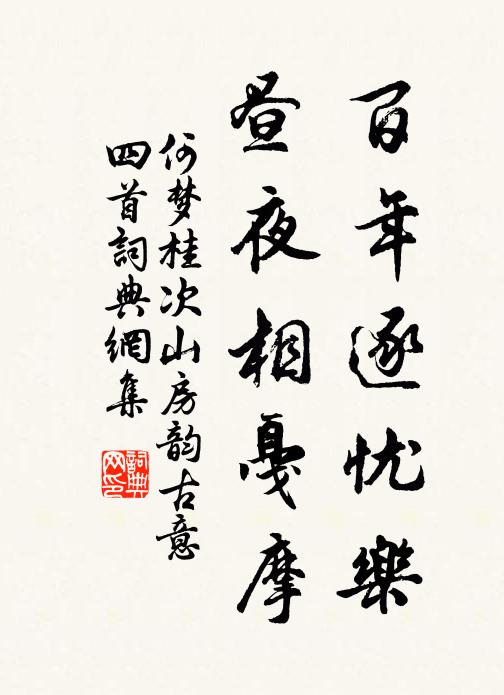 百年逐忧樂
昼夜相戛摩
何梦桂次山房韵古意
四首詞典網集
詞典网印